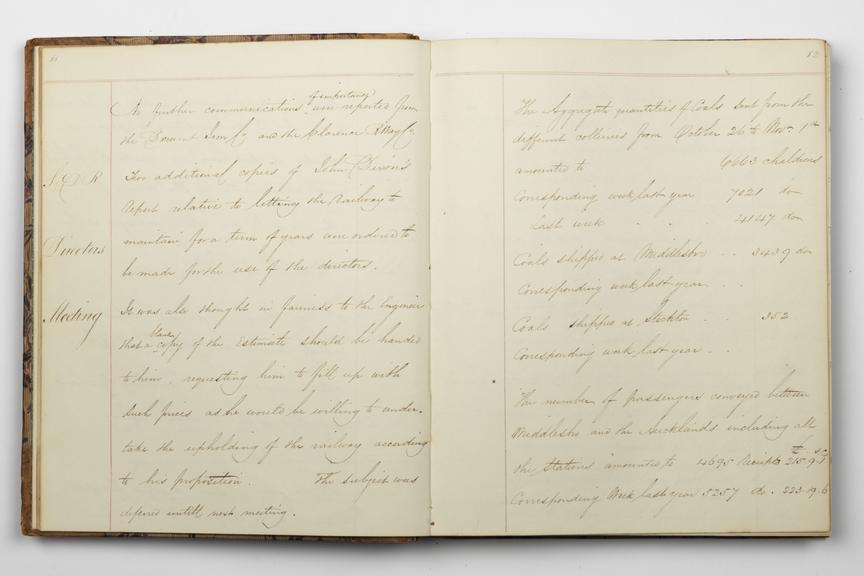 11
No further communications of importance were reported from
the Derwent Iron Co and the Clarence RWay Co
S&DR
Four additional copies of John Dixon's
report relative to letting the railway to
Directors
maintain for a term of years were ordered to
be made for the use of the directors.
Meeting
It was also thought in fairness to the Engineer
that a blank copy of the Estimate should be handed
to him, requesting him to fill up with
such prices as he would be willing to under-
take the upholding of the railway according
to his proposition. The subject was
deferred untill next meeting.
12
The Aggregate quantities of Coals sent from the
different collieries from October 26 to Novr. 1st
amounted to 6663 chaldrons
Corresponding week last year 7021 do
Last week 4147 do
Coals shipped at Middlesbro 3439 do
Corresponding week last year
Coals shipped at Stockton 352
Corresponding week last year
The number of passengers conveyed between
Middlesbro and the Aucklands including all
the stations amounted to 4695 Receipts £215.9.
Corresponding Week last year 5257 do. 223.19.6